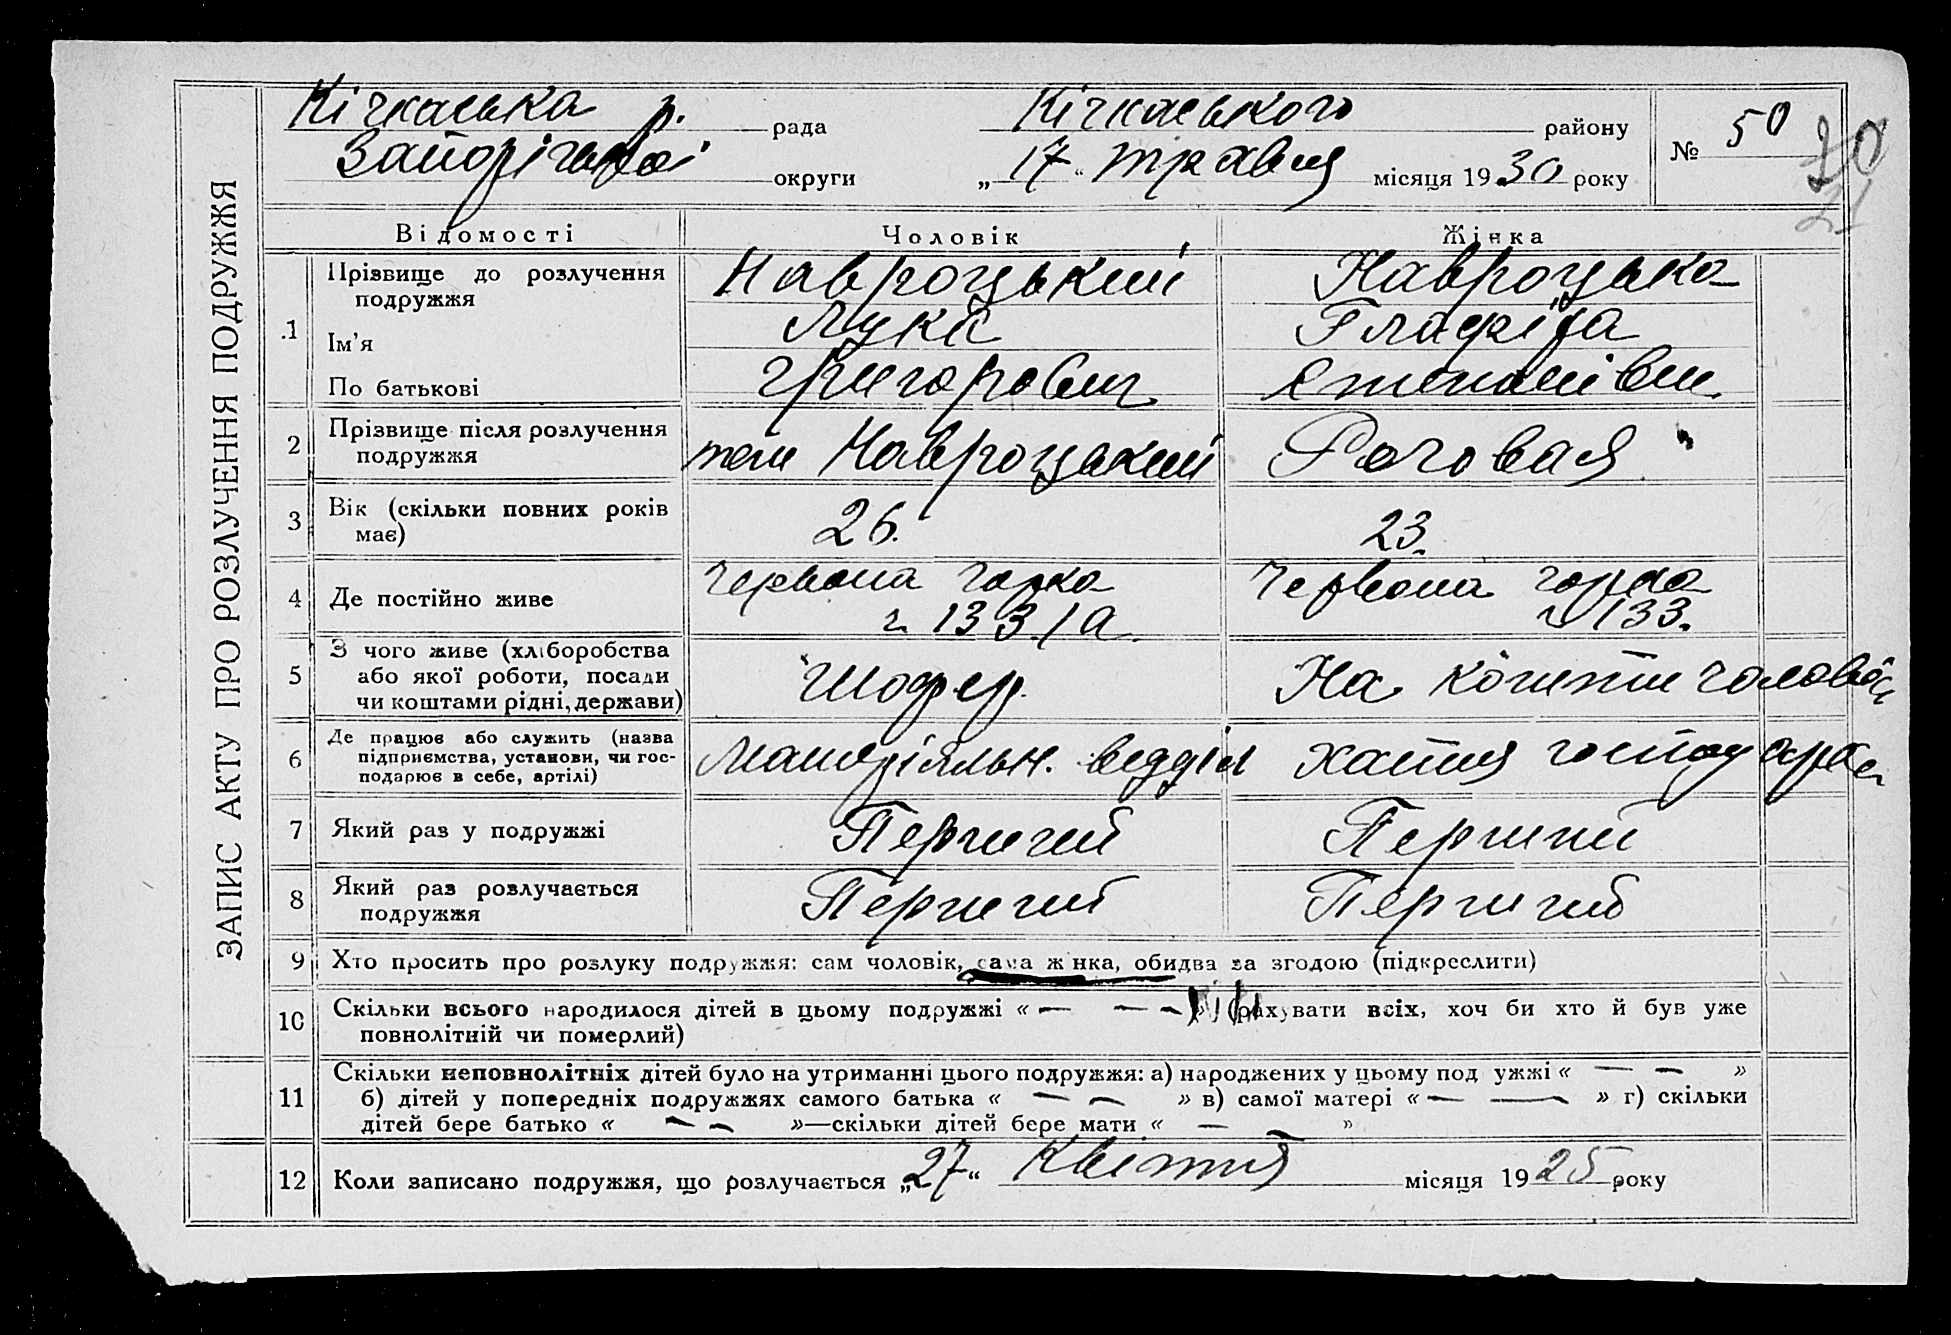 ЗАПИС АКТУ ПРО РОЗЛУЧЕННЯ ПОДРУЖЖЯ
Кічкаська р. рада Кічкаського району № 50
Запорізької округи „17“ травня місяця 1930 року
20
21
Відомості Чоловік Жінка
1 Прізвище до розлучення подружжя Навроцький Навроцька
Ім'я Лука Глафіра
По батькові Григорович Степанівна
2 Прізвище після розлучення Роговая
подружжя теж Навроцький
3 Вік (скільки повних років
має) 26. 23.
4 Де постійно живе Червона горка Червона горка
133/а. 133.
5 З чого живе (хліборобства
або якої роботи, посади Шофер. На кошти чоловіка
чи коштами рідні, держави)
6 Де працює або служить (назва
підприємства, установи, чи гос- відділ хатня господарка
подарює в себе, артілі)
7 Який раз у подружжі Перший Перший
8 Який раз розлучається
подружжя Перший Перший
9 Хто просить про розлуку подружжя: сам чоловік, сама жінка, обидва за згодою (підкреслити)
10 Скільки всього народилося дітей в цьому подружжі « — — — » (рахувати всіх, хоч би хто й був уже
повнолітній чи померлий)
11 Скільки неповнолітніх дітей було на утриманні цього подружжя: а) народжених у цьому подружжі « — — »
б) дітей у попередніх подружжях самого батька « — — » в) самої матері « — — » г) скільки
дітей бере батько « — — »—скільки дітей бере мати « — »
12 Коли записано подружжя, що розлучається „27“ Квітня місяця 1925 року